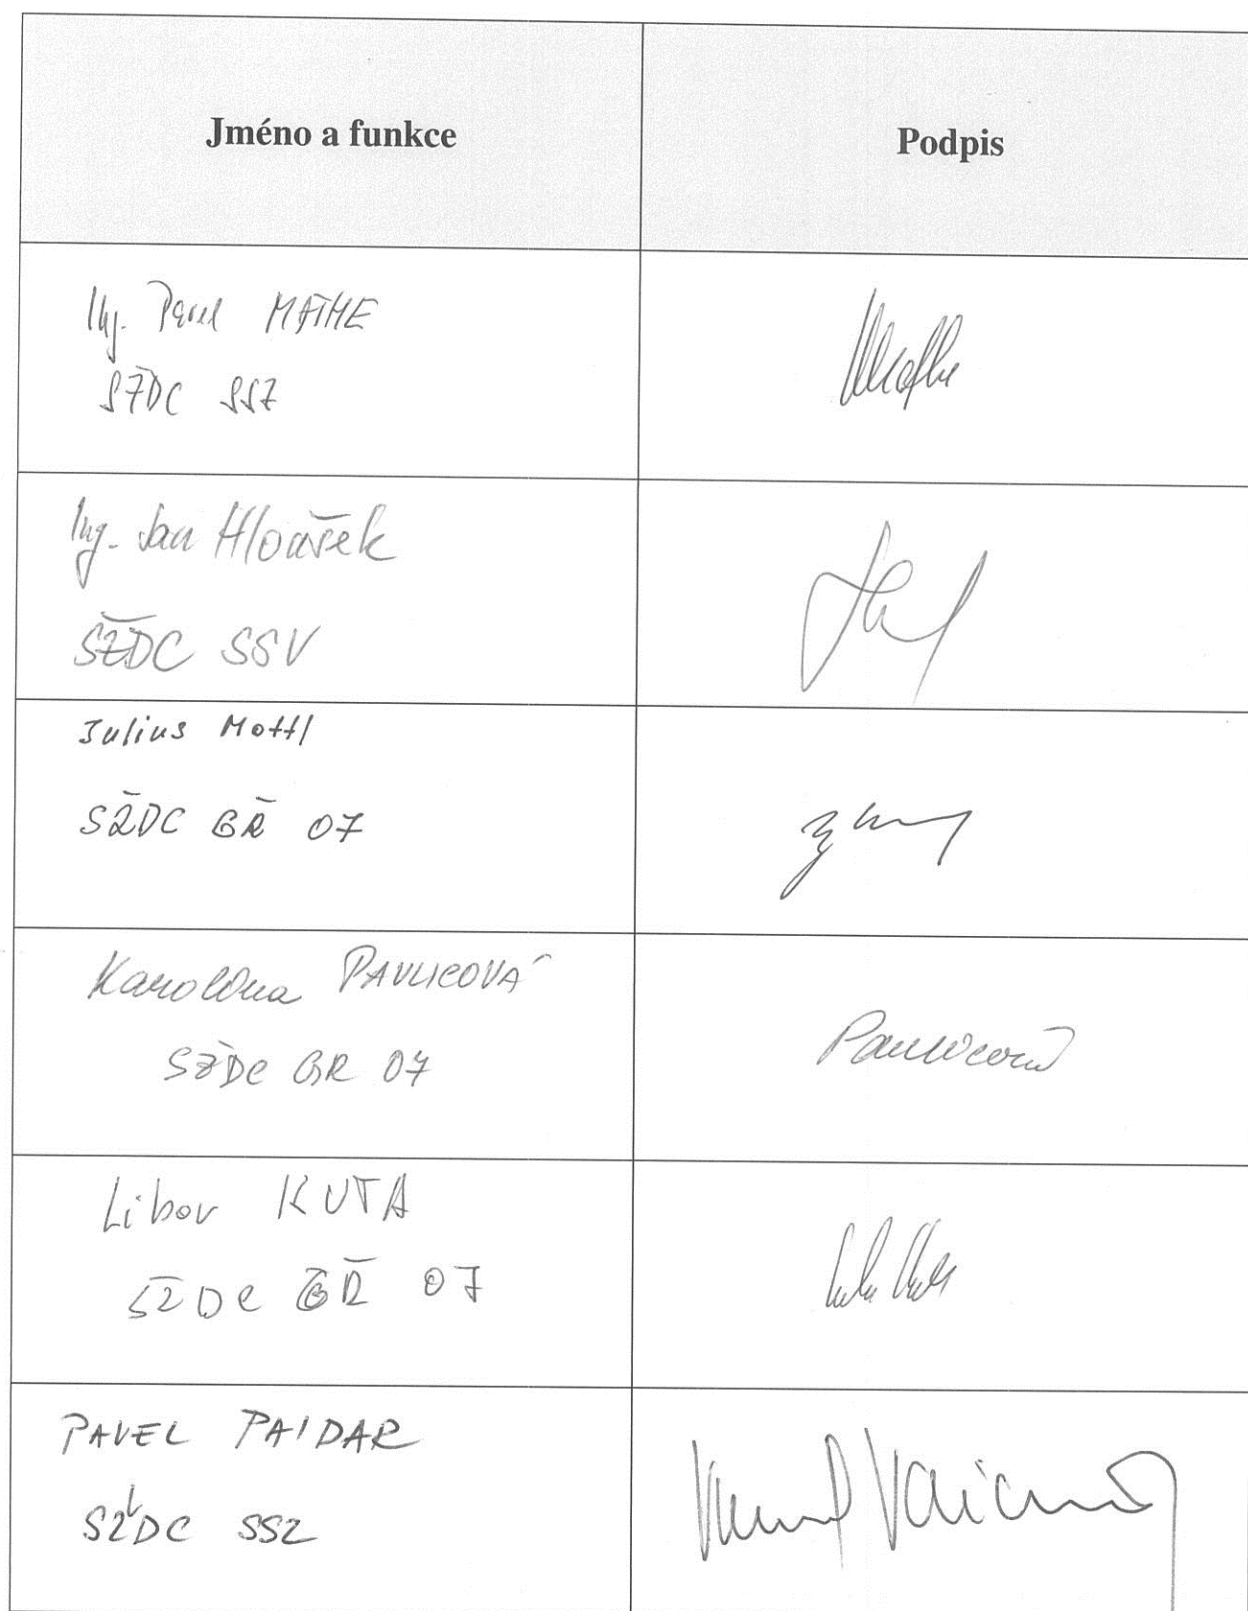 Jméno a funkce
Podpis
Ing. Pavel MATHE
SŽDC SSZ
Ing. Jan Hloušek
SŽDC SSV
Julius Mottl
SŽDC GŘ 07
Karolína PAVLICOVÁ
SŽDC GŘ 07
Pavlicová
Libor KUTA
SŽDC GŘ 07
PAVEL PAIDAR
SŽDC SSZ